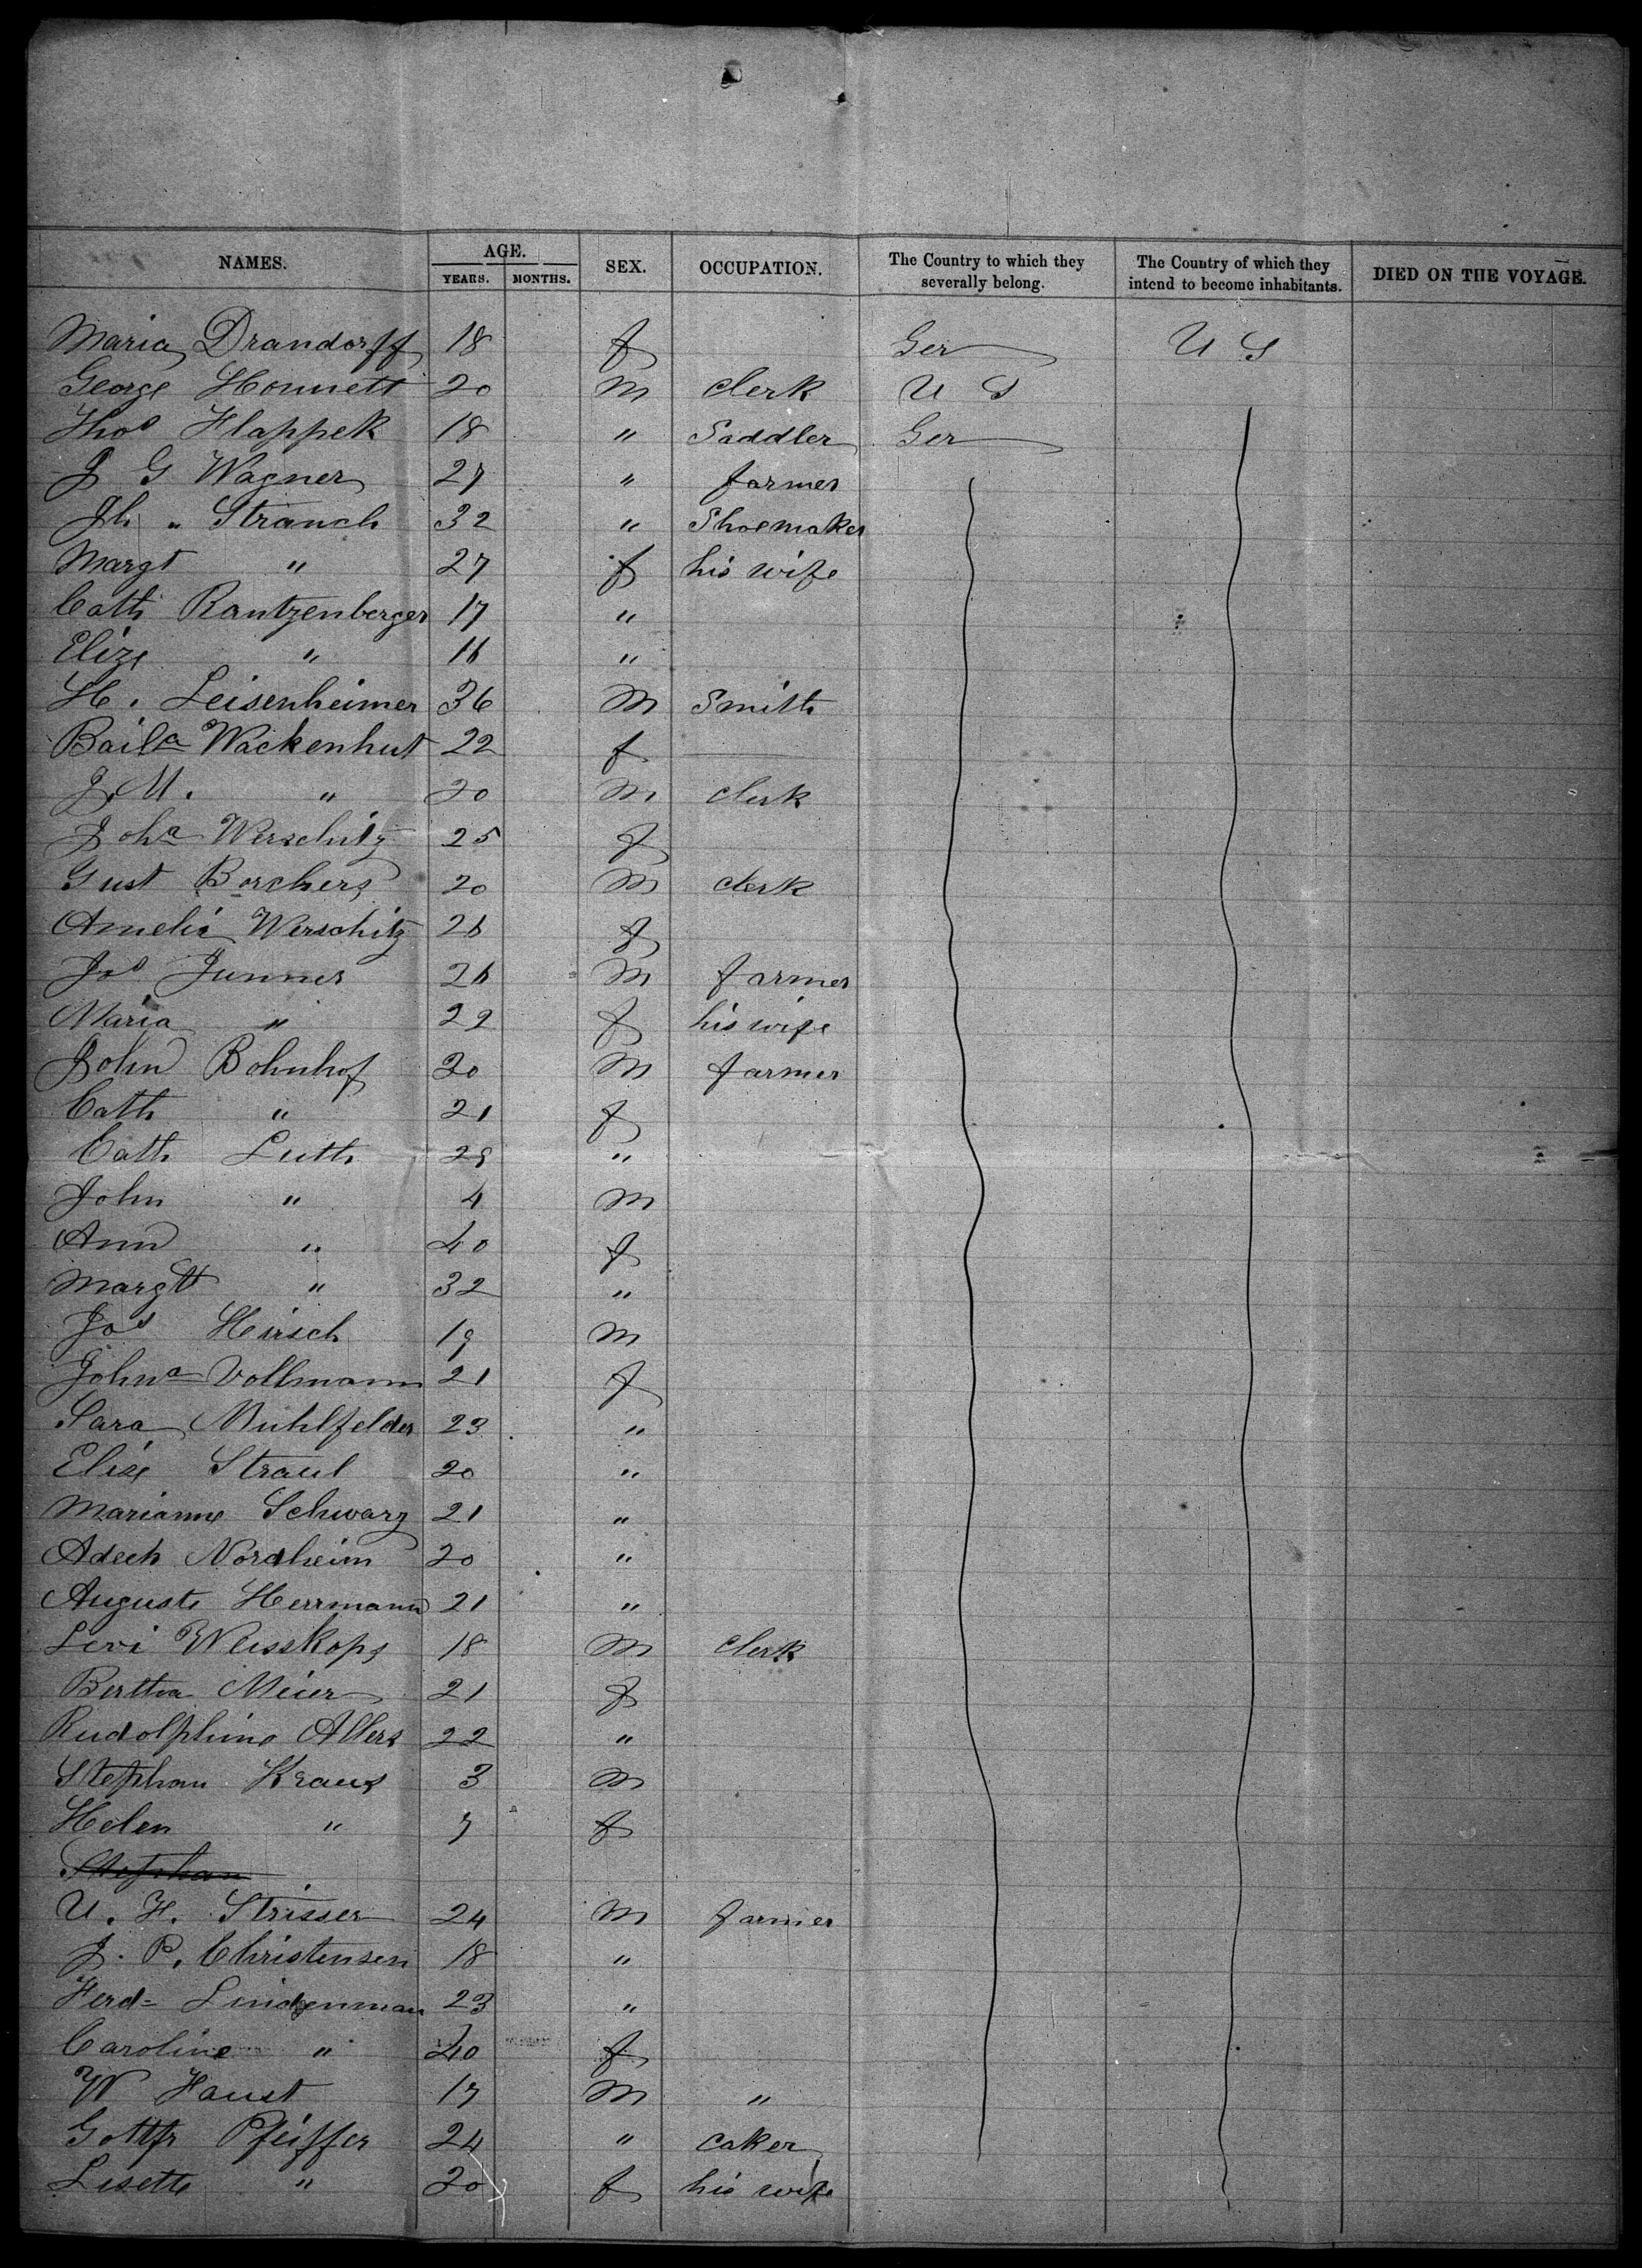 NAMES. AGE. SEX. OCCUPATION. The Country to which they severally belong. The Country of which they intend to become inhabitants. DIED ON THE VOYAGE.
YEARS. MONTHS.
Maria Drandorff 18 f Ger U S
George Honnett 20 m clerk U S
Thos Flappek 18 " Saddler Ger
J G Wagner 27 " farmer
Jh " Strauch 32 " Shoemaker
Margt " 27 f his wife
Cath Rantzenberger 17 "
Elize " 16 "
H. Leisenheimer 36 m Smith
Baila Wackenhut 22 f
J. M. " 20 m clerk
Joha Werschitz 25 f
Gust Borchers 20 m clerk
Amelia Werschitz 26 f
Jos Junner 26 m farmer
Maria " 22 f his wife
John Bohnhof 20 m farmer
Cath " 21 f
Cath Luth 28 "
John " 4 m
Ann " 40 f
Margtt " 32 "
Jos Hirsch 19 m
Johna Vollmann 21 f
Sara Muhlfelder 23 "
Elise Straul 20 "
Marianne Schwarz 21 "
Adech Nordheim 20 "
Auguste Herrmann 21 "
Levi Weisskopf 18 m clerk
Bertha Meier 21 f
Rudolphine Allers 22 "
Stephan Kraus 3 m
Helen " 7 f
Stephan
U. H. Strisser 24 m farmer
J. P. Christensen 18 "
Ferd= Lindenman 23 "
Caroline " 40 f
W Faust 17 m "
Gottfr Pfeiffer 24 " caker
Lisette " 20 f his wife